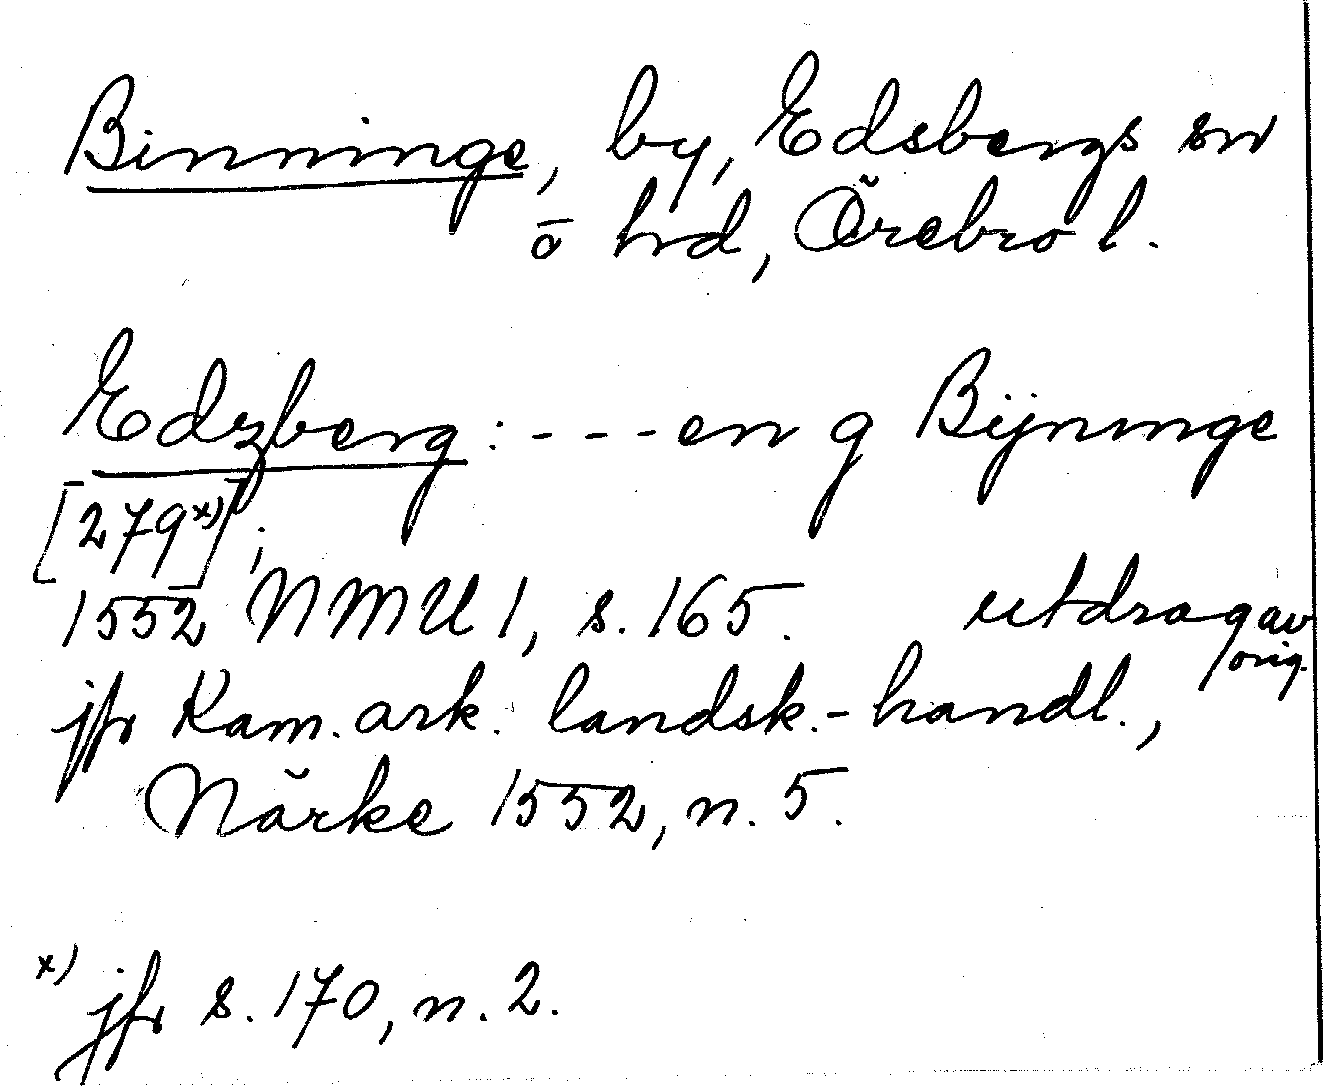 Binninge, by, Edsbergs sn
o hd, Örebro l.
Edzberg: - - - en g Bijninge
[279x)];
1552 NMU 1, s. 165. utdrag av orig.
jfr Kam. ark. landsk.-handl.,
Närke 1552, n. 5.
x) jfr s. 170, n. 2.